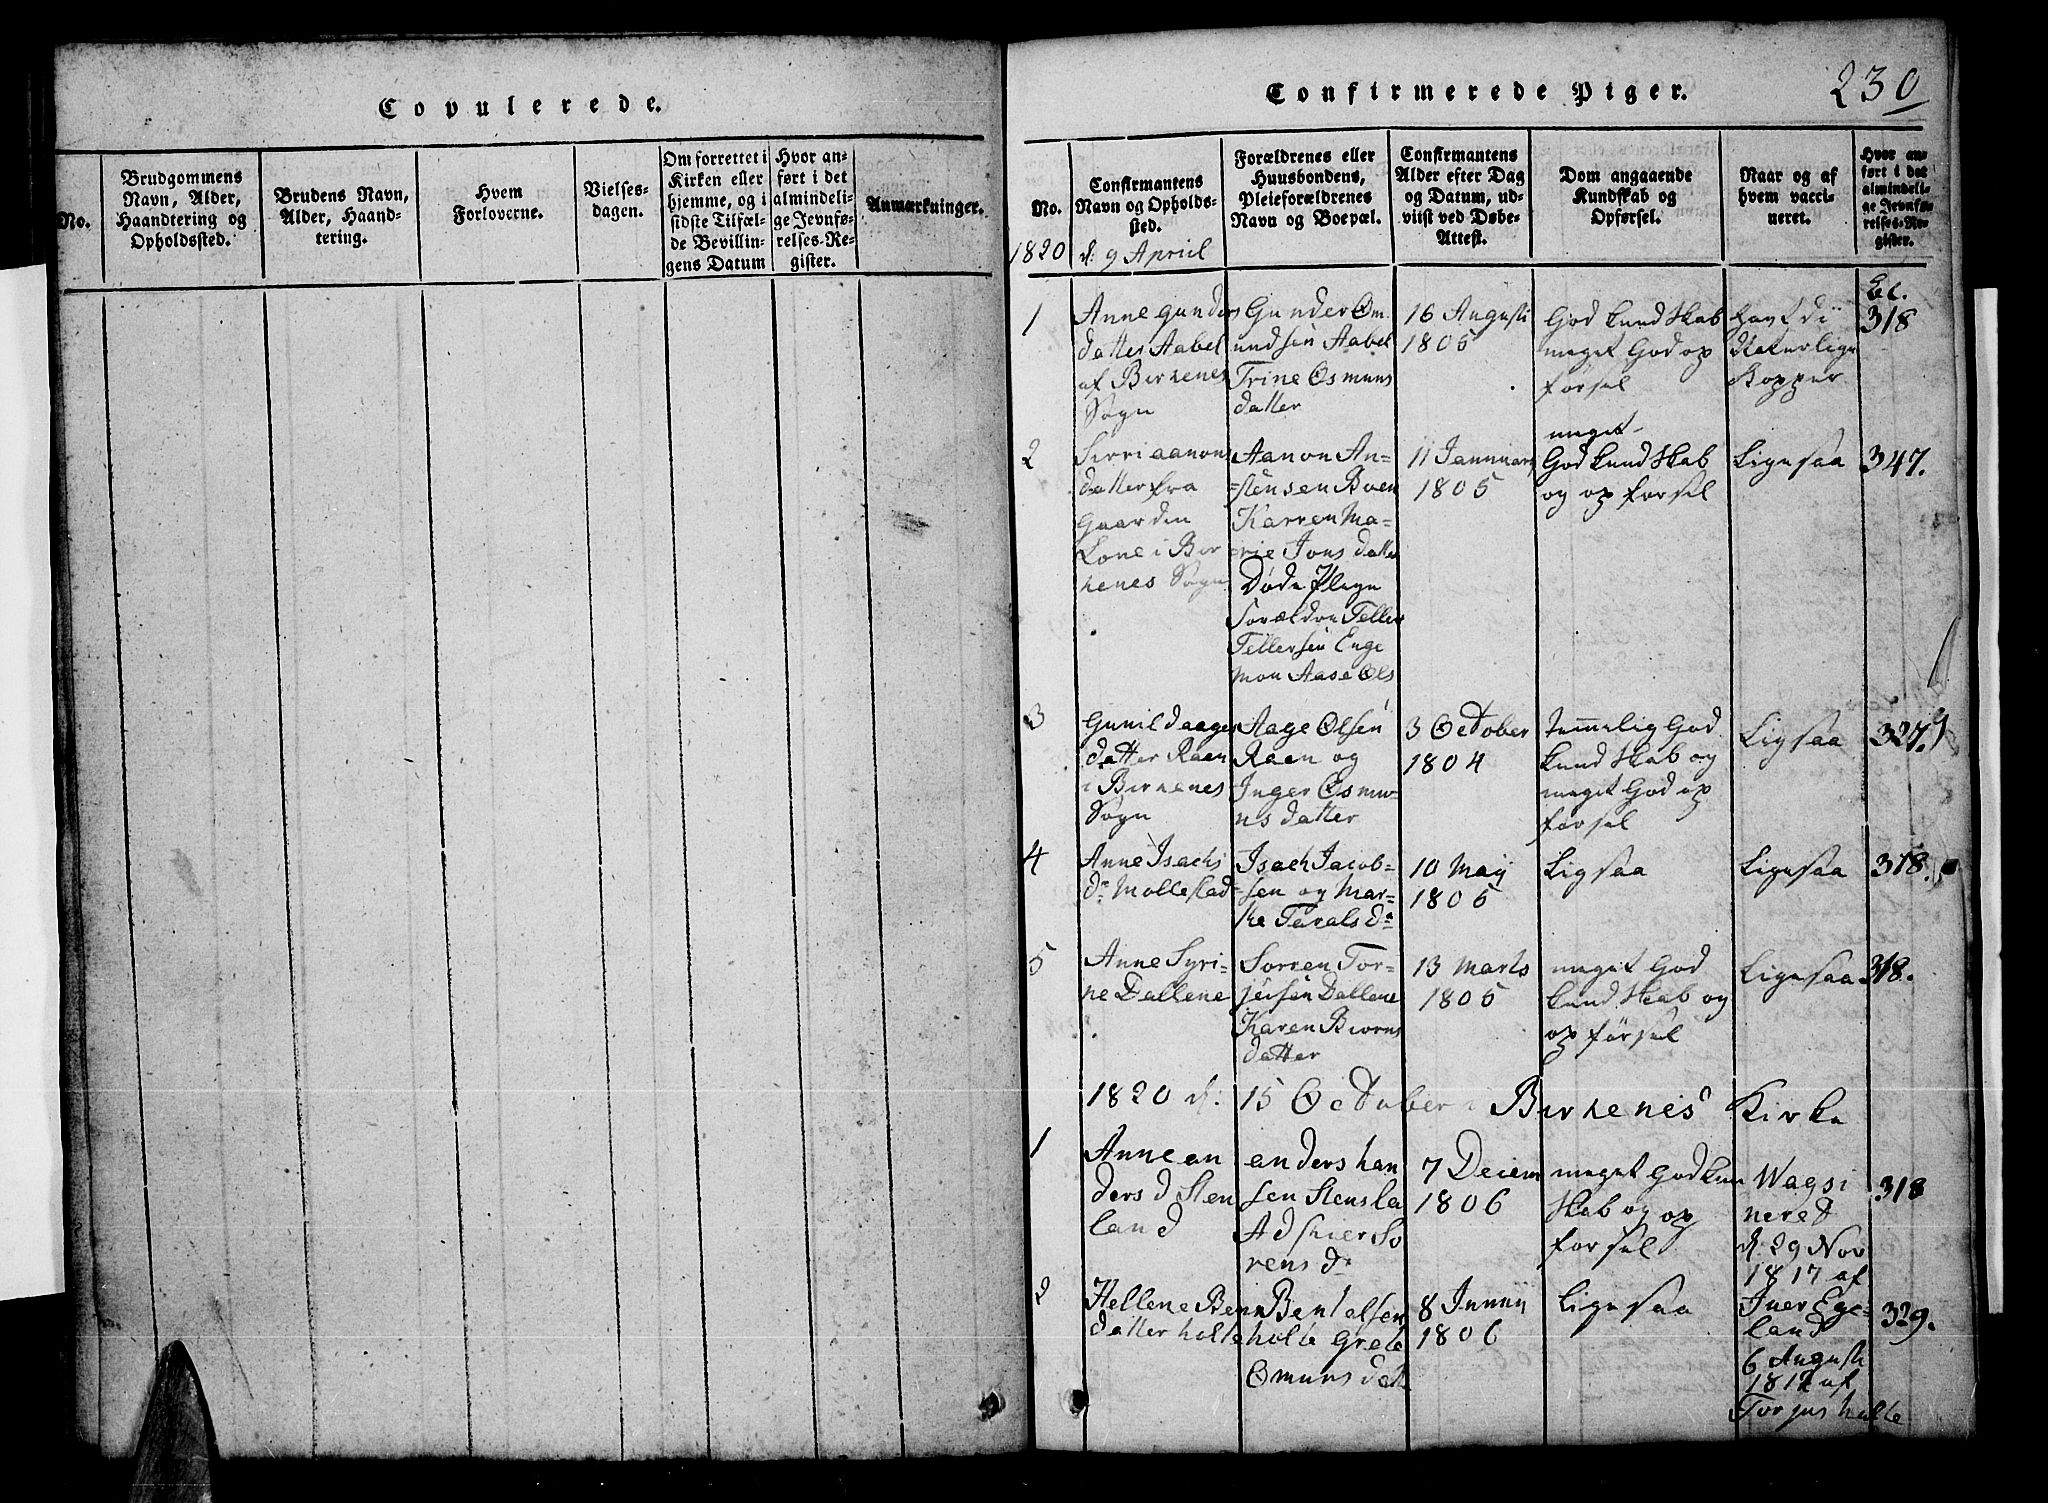 Copulerede.
No.
Brudgommens
Navn, Alder,
Haandtering og
Opholdssted.
Brudens Navn,
Alder, Haand-
tering.
Hvem
Forloverne.
Vielses-
dagen.
Om forrettet i
Kirken eller
hjemme, og i
sidste Tilfæl-
de Bevillin-
gens Datum
Hvor an-
ført i det
almindeli-
ge Jevnfø-
relses-Re-
gister.
Anmærkninger.
Confirmerede Piger.
230
No.
Confirmantens
Navn og Opholds-
sted.
Forældrenes eller
Huusbondens,
Pleieforældrenes
Navn og Boepæl.
Confirmantens
Alder efter Dag
og Datum, ud-
viist ved Døbe-
Attest.
Dom angaaende
Kundskab og
Opførsel.
Naar og af
hvem vacci-
neret.
Hvor an-
ført i det
almindeli-
ge Jevnfø-
relses-Re-
gister.
1820 d: 9 April
1
Anne gunders
datter Aabel
af Birkenes
Sogn
Gunder Om
undsen Aabel
Trine Osmuns
datter
16 Augusti
1805
God kundskab
meget God op
førsel
havt di
Naturlige
Kopper
318
2
Sirri aanons
datter fra
Gaarden
Lone i Bir
kenes Sogn
Aanon An-
stensen Boen
Karren Ma-
rie Jons datter
Døde Pleye
Forældre Teller
Tellersen Enge
mon Aase Ols
11 Januarij
1805
meget
God kundskab
og opførsel
Ligesaa
347.
3
Gunild aages
datter Raen
i Birkenes
Sogn
Aage Olsen
Raen og
Inger Osmu-
ns datter
3 October
1804
temmelig God
kundskab og
meget God op
førsel
Ligsaa
327.
4
Anne Isachs
dr Mollestad
Isach Jacob-
sen og Mar-
the Tarals dr
10 Maij
1805
Ligsaa
Ligesaa
318.
5
Anne Syri-
ne Dallene
Sorren Tor-
jersen Dallene
Karen Biorns
datter
13 Marts
1805
meget God
kundskab og
opførsel
Ligesaa
318.
1820 d: 15 October i Birkenes Kirke
1
Anne an
ders d Sten
land
anders han
sen Stensla
Ad skier So
rens dr
7 Decem
1806
meget God kun
skab og op
forsel
Wagsi
nered
d: 29 Nov
1817 af
Iver Ege-
land
318
2
Hellene Benn
datter holte
Bent olsen
holte Grete
Omuns datt
8 Junij
1806
Ligesaa
6 Augusti
1812 af
Torjus holte
329.